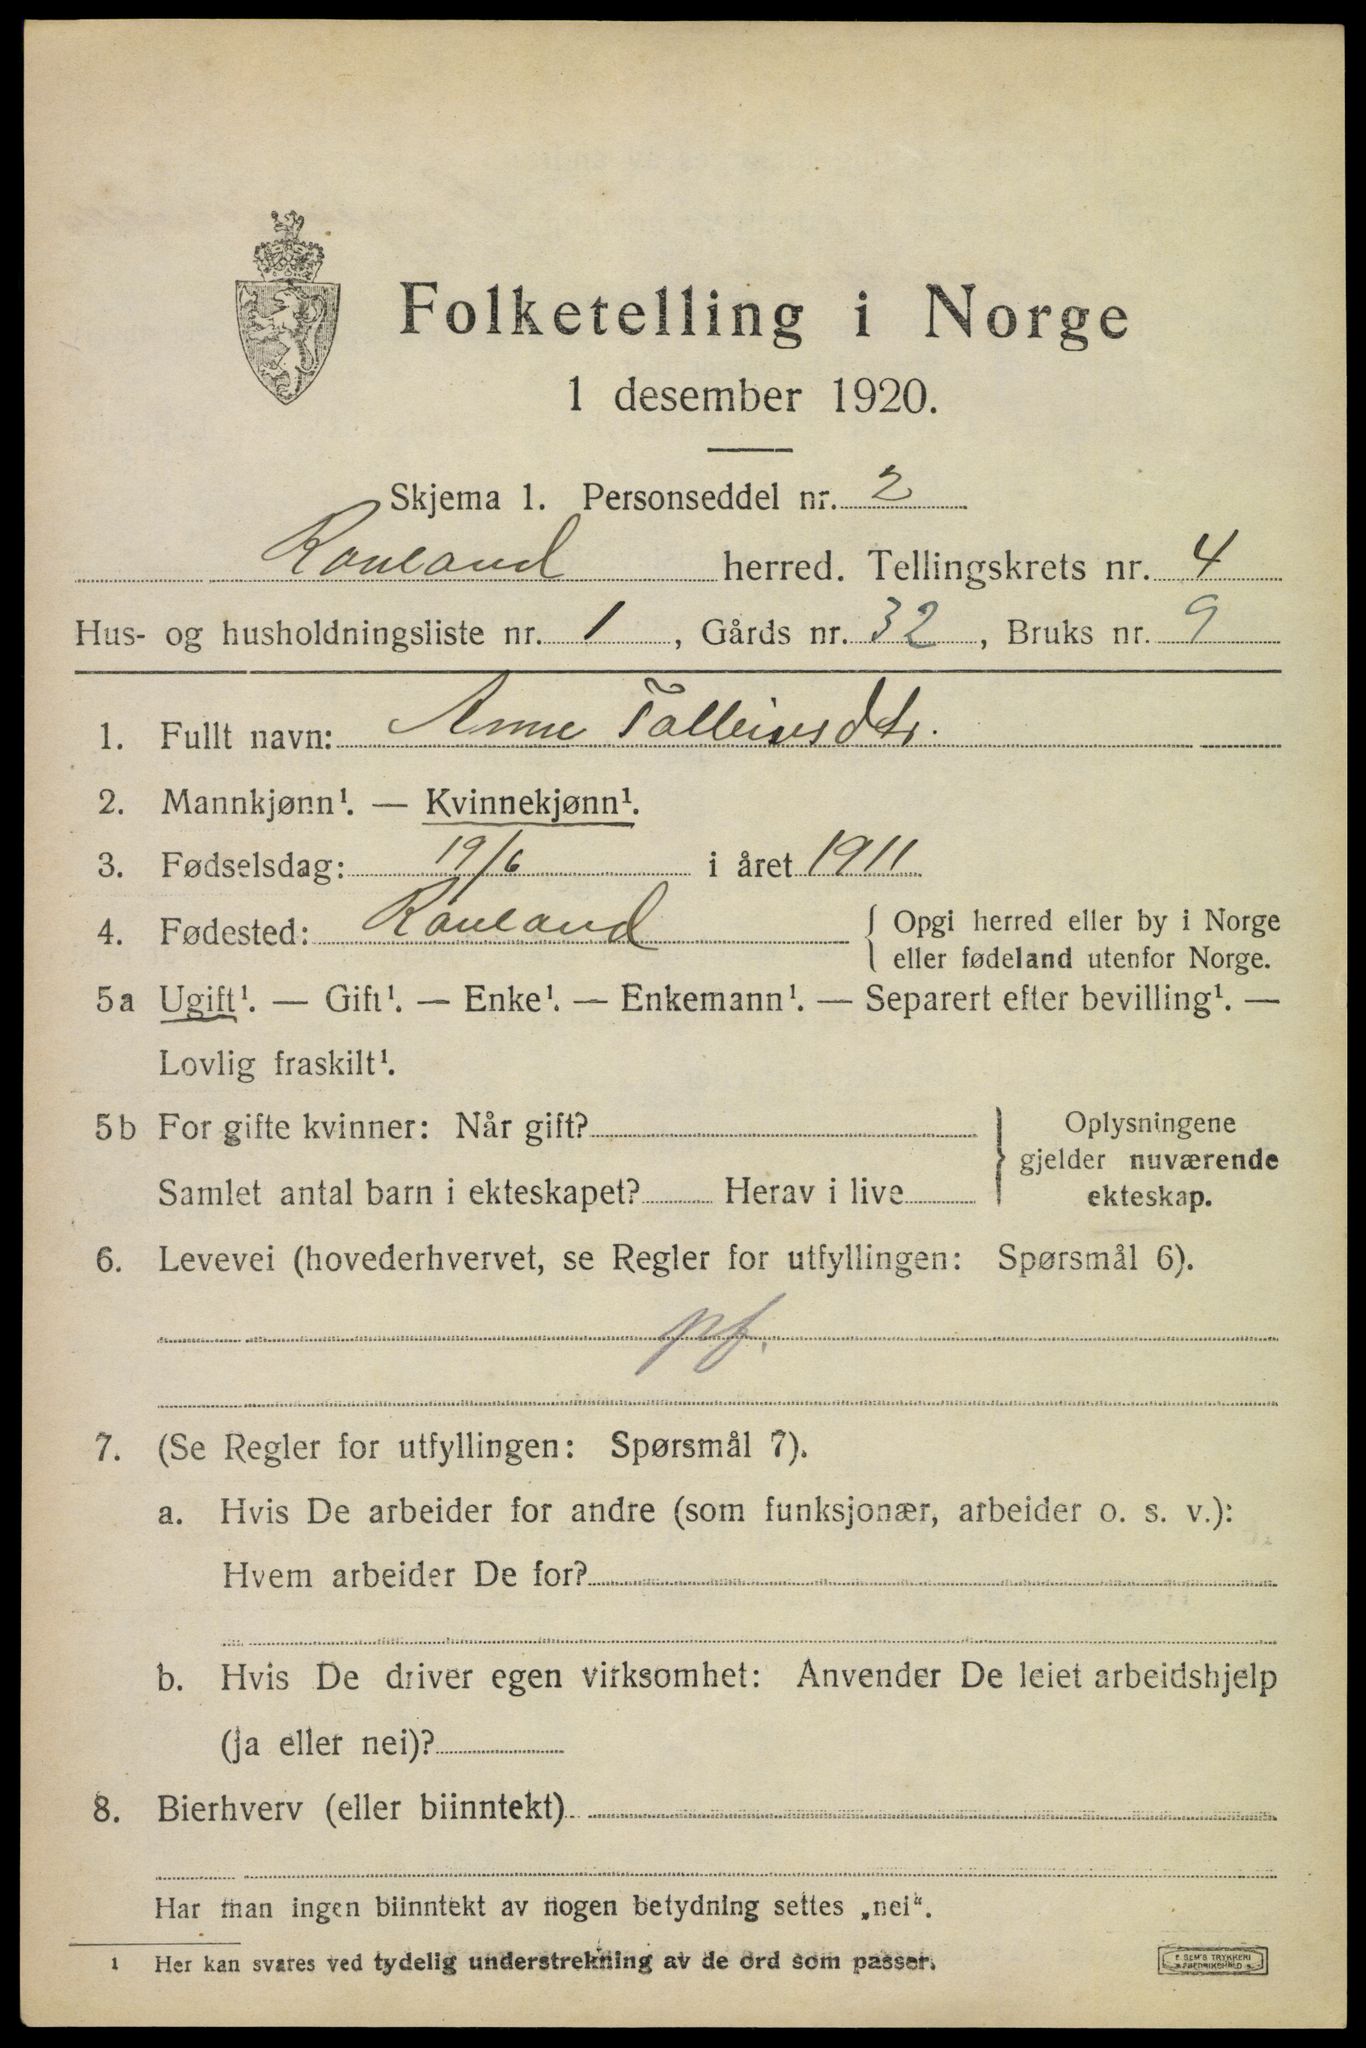 Folketelling i Norge
1 desember 1920.
Skjema 1. Personseddel nr. 2
Rauland herred. Tellingskrets nr. 4
Hus- og husholdningsliste nr. 1, Gårds nr. 32, Bruks nr. 9
1. Fullt navn: Anne Talleivsdtr.
2. Mannkjønn¹. — Kvinnekjønn¹.
3. Fødselsdag: 19/6 i året 1911
4. Fødested: Rauland { Opgi herred eller by i Norge
eller fødeland utenfor Norge.
5a Ugift¹. — Gift¹. — Enke¹. — Enkemann¹. — Separert efter bevilling¹. —
Lovlig fraskilt¹.
5b For gifte kvinner: Når gift? } Oplysningene
gjelder nuværende
Samlet antal barn i ekteskapet? Herav i live ekteskap.
6. Levevei (hovederhvervet, se Regler for utfyllingen: Spørsmål 6).
pf.
7. (Se Regler for utfyllingen: Spørsmål 7).
a. Hvis De arbeider for andre (som funksjonær, arbeider o. s. v.):
Hvem arbeider De for?
b. Hvis De driver egen virksomhet: Anvender De leiet arbeidshjelp
(ja eller nei)?
8. Bierhverv (eller biinntekt)
Har man ingen biinntekt av nogen betydning settes „nei“.
1 Her kan svares ved tydelig understrekning av de ord som passer.
SEM'S TRYKKERI
FREDRIKSHALD